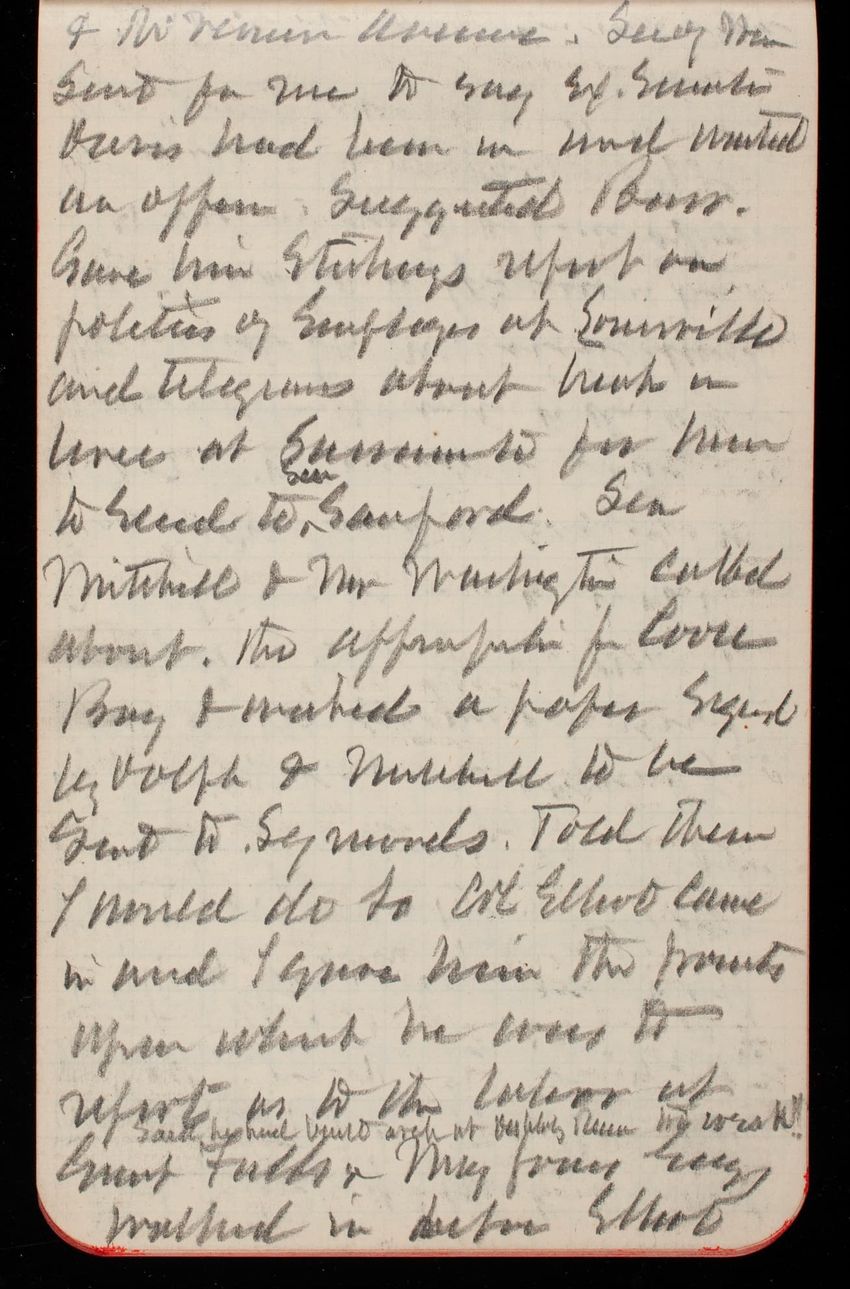 & Rhode Avenue. Secy War
Sent for me to say Ex. Senator
Davis had been in and wanted
an officer. Suggested Barr.
Gave him Stickneys report on
politics of employes at Louisville
and telegrams about break in
levee at Sacramento for him
to send to Sen Sanford. Sen
Mitchell & Mr Washington called
about. the appropriation for Coose
Bay & wanted a paper Signed
by Dolph & Mitchell to be
Sent to Seymonds. Told them
I would do so Col Elliot came
in and I gave him the points
upon which he was to
report as to the labor at
Said he had build arch at too weak"
Great Falls & Maj from Engs
walked in before Elliot